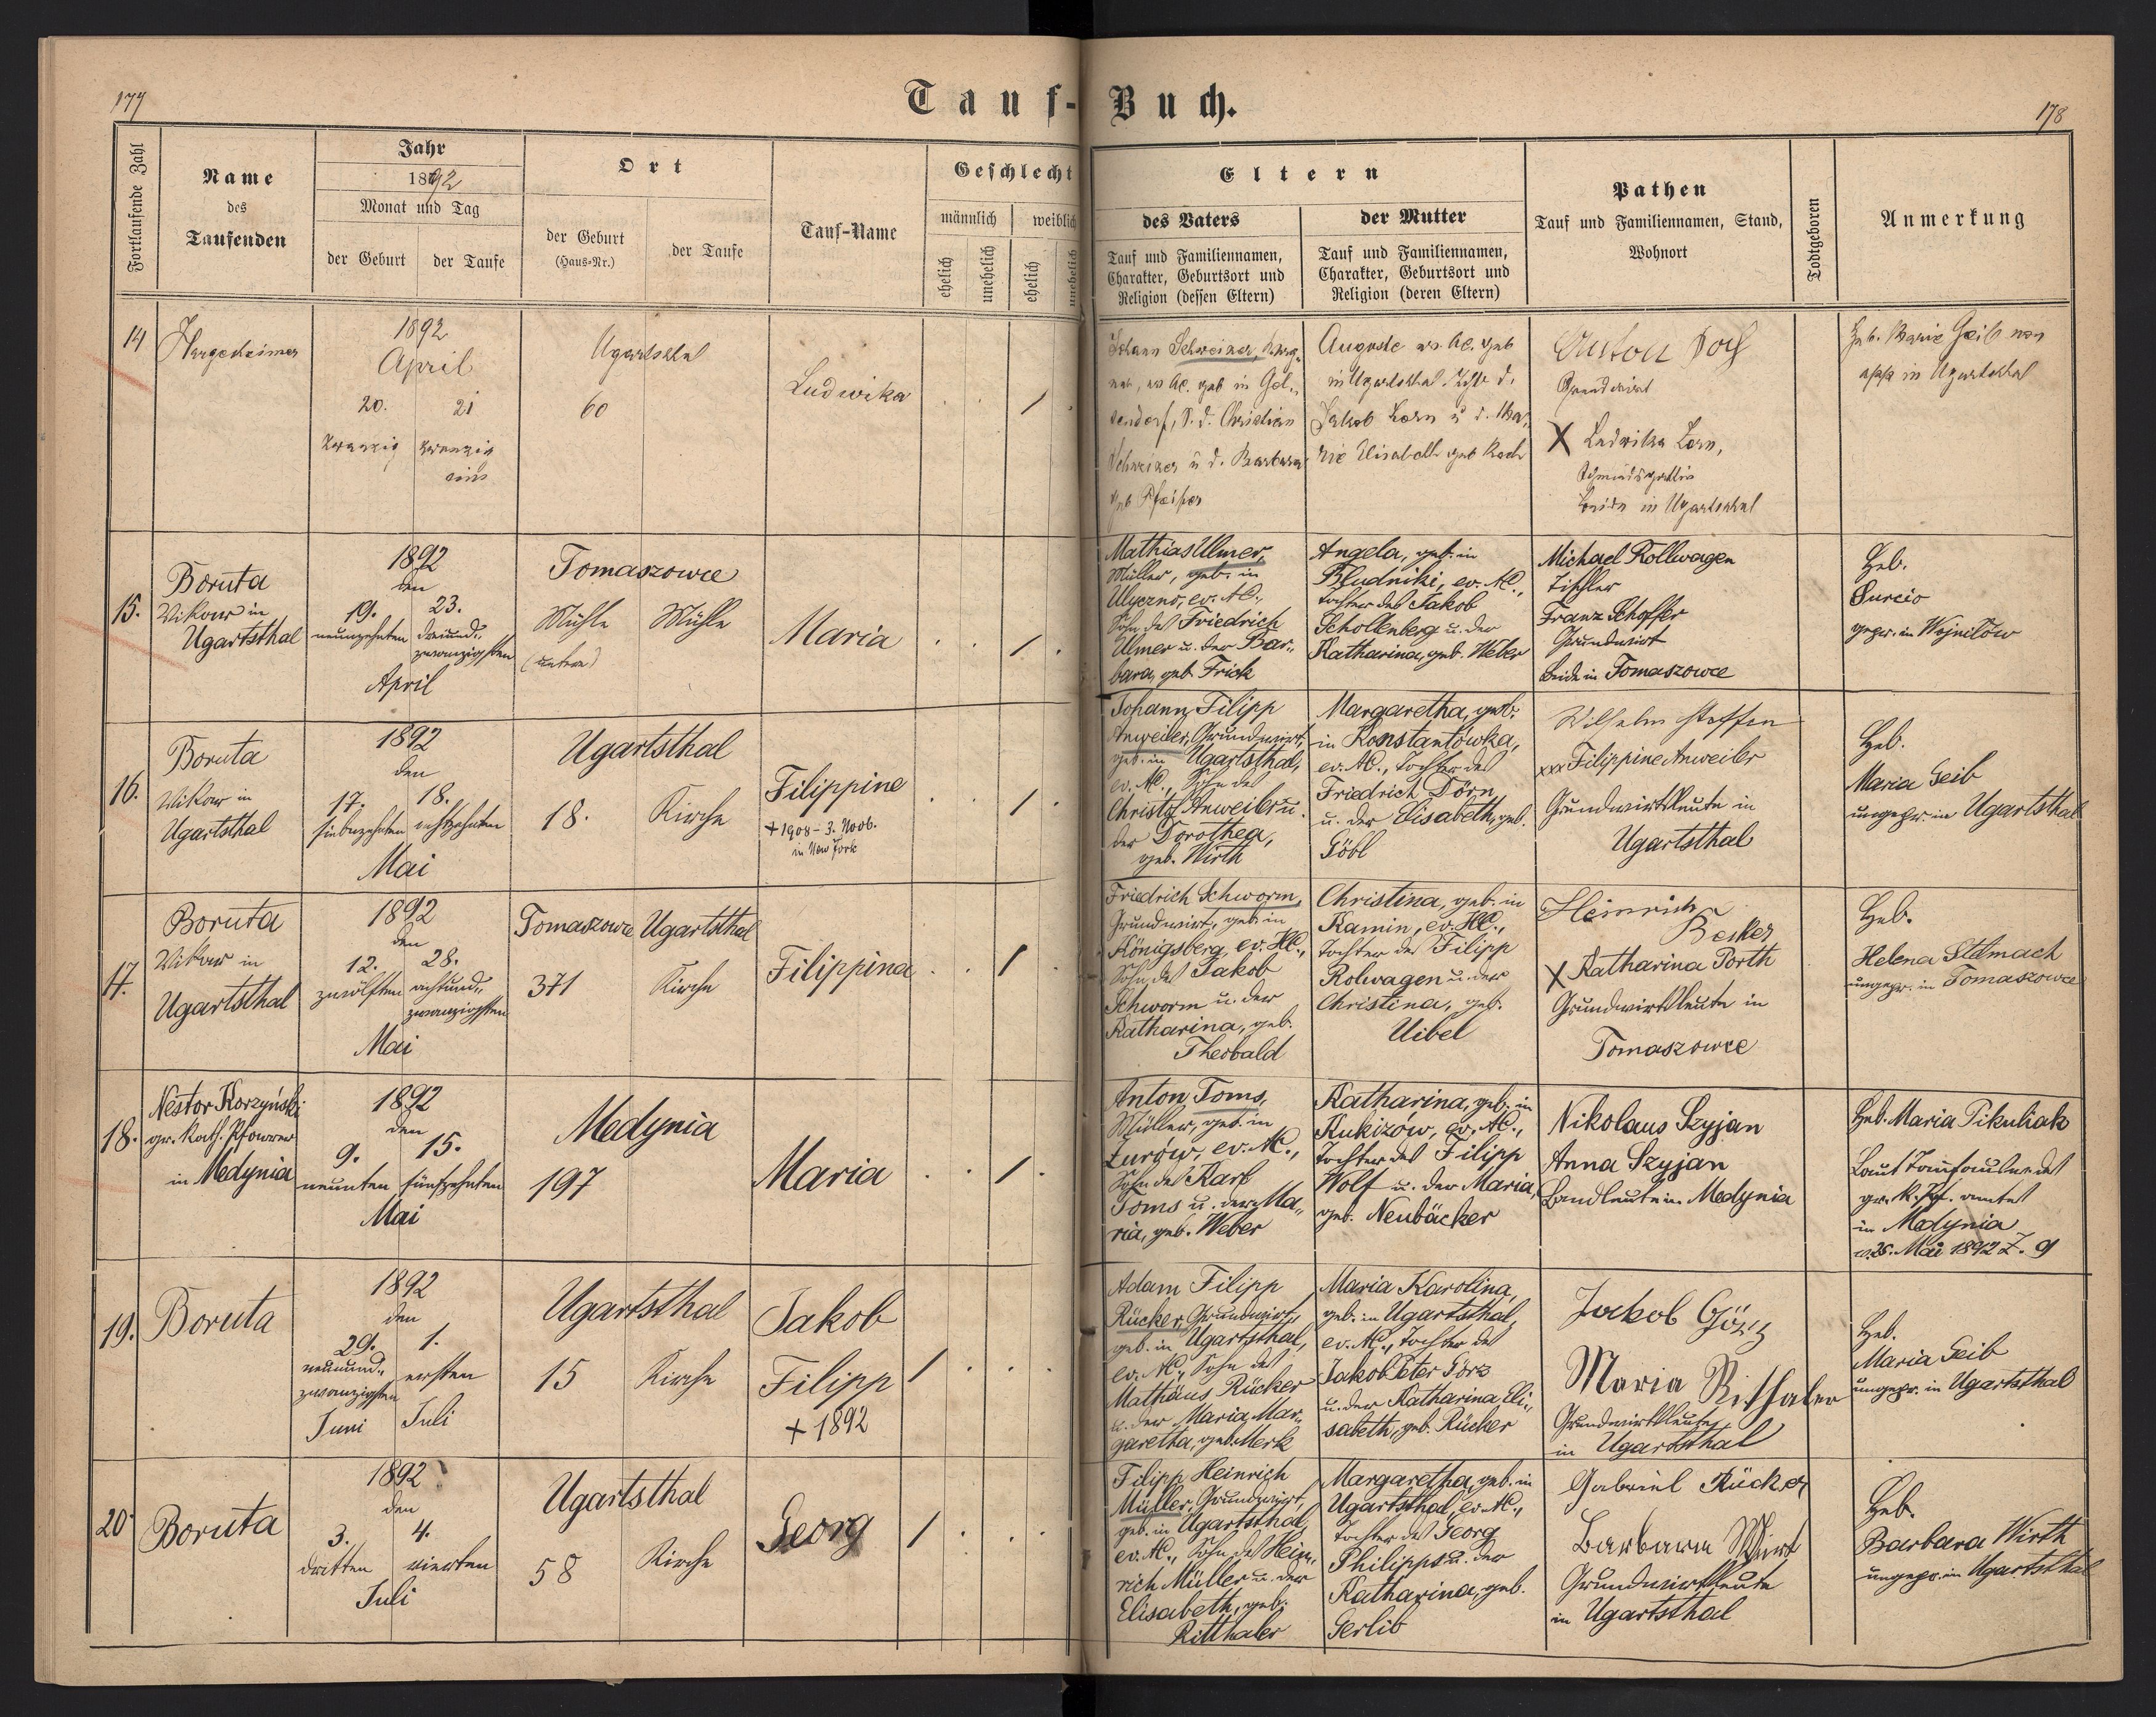 177
178
Tauf-Buch.
Fortlaufende Zahl
Name
des
Taufenden
Jahr
1892
Monat und Tag
der Geburt
der Taufe
Ort
der Geburt
(Haus-Nr.)
der Taufe
Tauf-Name
Geschlecht
männlich
weiblich
ehelich
unehelich
ehelich
unehelich
Eltern
des Vaters
Tauf und Familiennamen,
Charakter, Geburtsort und
Religion (dessen Eltern)
der Mutter
Tauf und Familiennamen,
Charakter, Geburtsort und
Religion (deren Eltern)
Pathen
Tauf und Familiennamen, Stand,
Wohnort
Todtgeboren
Anmerkung
14
Hargesheimer
1892
April
20.
21
zwanzig
zwanzig
eins
Ugartsthal
60
Ludwika
/
Johann Schweizer,
ev AC. geb in Gel-
sendorf, S. d. Christian
Schweizer u d. Barbara
geb Pfeifer
Auguste ev. AC. geb
in Ugartsthal, Tcht d.
Jakob Lorn u d. Ma-
rie Elisabeth geb Koch
Grundwirt
X Ludwika Lorn,
Schmiedsgattin
beide in Ugartsthal
Heb. Marie Geib non
appr in Ugartsthal
15.
Boruta
Vikar in
Ugartsthal
1892
den
19.
23.
neunzehnten
dreiund-
zwanzigsten
April
Tomaszowce
Mühle
Mühle
(untere)
Maria
/
Mathias Ulmer,
Müller, geb. in
Ulyczno, ev. AC.,
Sohn des Friedrich
Ulmer u. der Bar-
bara, geb Frick
Angela, geb. in
Bludniki, ev. AC.,
Tochter des Jakob
Schollenberg u. der
Katharina, geb. Weber
Michael Rollwagen
Tischler
Franz Schoffer
Grundwirt
beide in Tomaszowce
Heb.
Surcio
gepr. in Wojnilów
16.
Boruta
Vikar in
Ugartsthal
1892
den
17.
18.
siebzehnten
achtzehnten
Mai
Ugartsthal
18.
Kirche
Filippine
+ 1908 - 3. Novb.
in New York
/
Johann Filipp
Anweiler, Grundwirt,
geb. in Ugartsthal,
ev. AC., Sohn des
Christof Anweiler u.
der Dorothea,
geb. Wirth
Margaretha, geb.
in Konstantówka,
ev. AC., Tochter des
Friedrich Dörn
u. der Elisabeth, geb.
Göbl
Wilhelm Steffen
xxx Filippine Anweiler
Grundwirtsleute in
Ugartsthal
Heb.
Maria Geib
ungepr. in Ugartsthal
17.
Boruta
Vikar in
Ugartsthal
1892
den
12.
28.
zwölften
achtund-
zwanzigsten
Mai
Tomaszowce
Ugartsthal
371
Kirche
Filippina
/
Friedrich Schworm,
Grundwirt, geb. in
Königsberg, ev. HC.,
Sohn des Jakob
Schworm u. der
Katharina, geb.
Theobald
Christina, geb. in
Kamin, ev. HC.,
Tochter des Filipp
Rolwagen u. der
Christina, geb.
Uibel
Heinrich
Becker
X Katharina Porth
Grundwirtsleute in
Tomaszowce
Heb.
Helena Stelmach
ungepr. in Tomaszowce
18.
Nestor Korzyński
gr. kath. Pfarrer
in Medynia
1892
den
9.
15.
neunten
fünfzehnten
Mai
Medynia
197
Maria
/
Anton Toms,
Müller, geb. in
Żurów, ev. AC.,
Sohn des Karl
Toms u. der Ma-
ria, geb. Weber
Katharina, geb. in
Kukizów, ev. AC.,
Tochter des Filipp
Wolf u. der Maria,
geb. Neubäcker
Nikolaus Szyjan
Anna Szyjan
Landleute in Medynia
Heb. Maria Pikuliak
Laut Taufausw. des
gr. k. Pf. amtes
in Medynia
v. 25. Mai 1892 Z. 9
19.
Boruta
1892
den
29.
1.
neunund-
zwanzigsten
ersten
Juni
Juli
Ugartsthal
15
Kirche
Jakob
Filipp
+ 1892
/
Adam Filipp
Rücker, Grundwirt,
geb. in Ugartsthal,
ev. AC., Sohn des
Mathäus Rücker
u. der Maria Mar-
garetha, geb. Merk
Maria Karolina,
geb. in Ugartsthal,
ev. AC., Tochter des
Jakob Peter Görz
u. der Katharina Eli-
sabeth, geb. Rücker
Jackob Görz
Maria Rithaler
Grundwirtsleute
in Ugartsthal
Heb.
Maria Geib
ungepr. in Ugartsthal
20
Boruta
1892
den
3.
4.
dritten
vierten
Juli
Ugartsthal
58
Kirche
Georg
/
Filipp Heinrich
Müller, Grundwirt,
geb. in Ugartsthal,
ev. AC., Sohn des Hein-
rich Müller u. der
Elisabeth, geb.
Ritthaler
Margaretha, geb. in
Ugartsthal, ev. AC.,
Tochter des Georg
Philipps u. der
Katharina, geb.
Gerlib
Gabriel Rücker
Barbara Wirt
Grundwirtsleute
in Ugartsthal
Heb.
Barbara Wirth
ungepr. in Ugartsthal